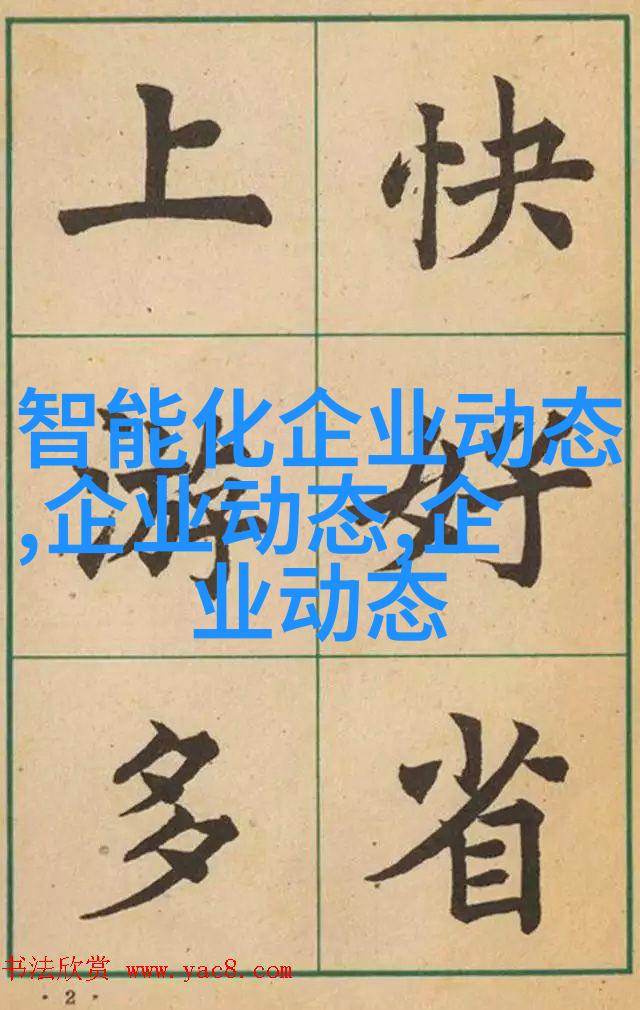 上游多
快好省
智能化企业动态
,企业动态,企
业动态
书法欣赏 www.yac8.com
· 2 ·